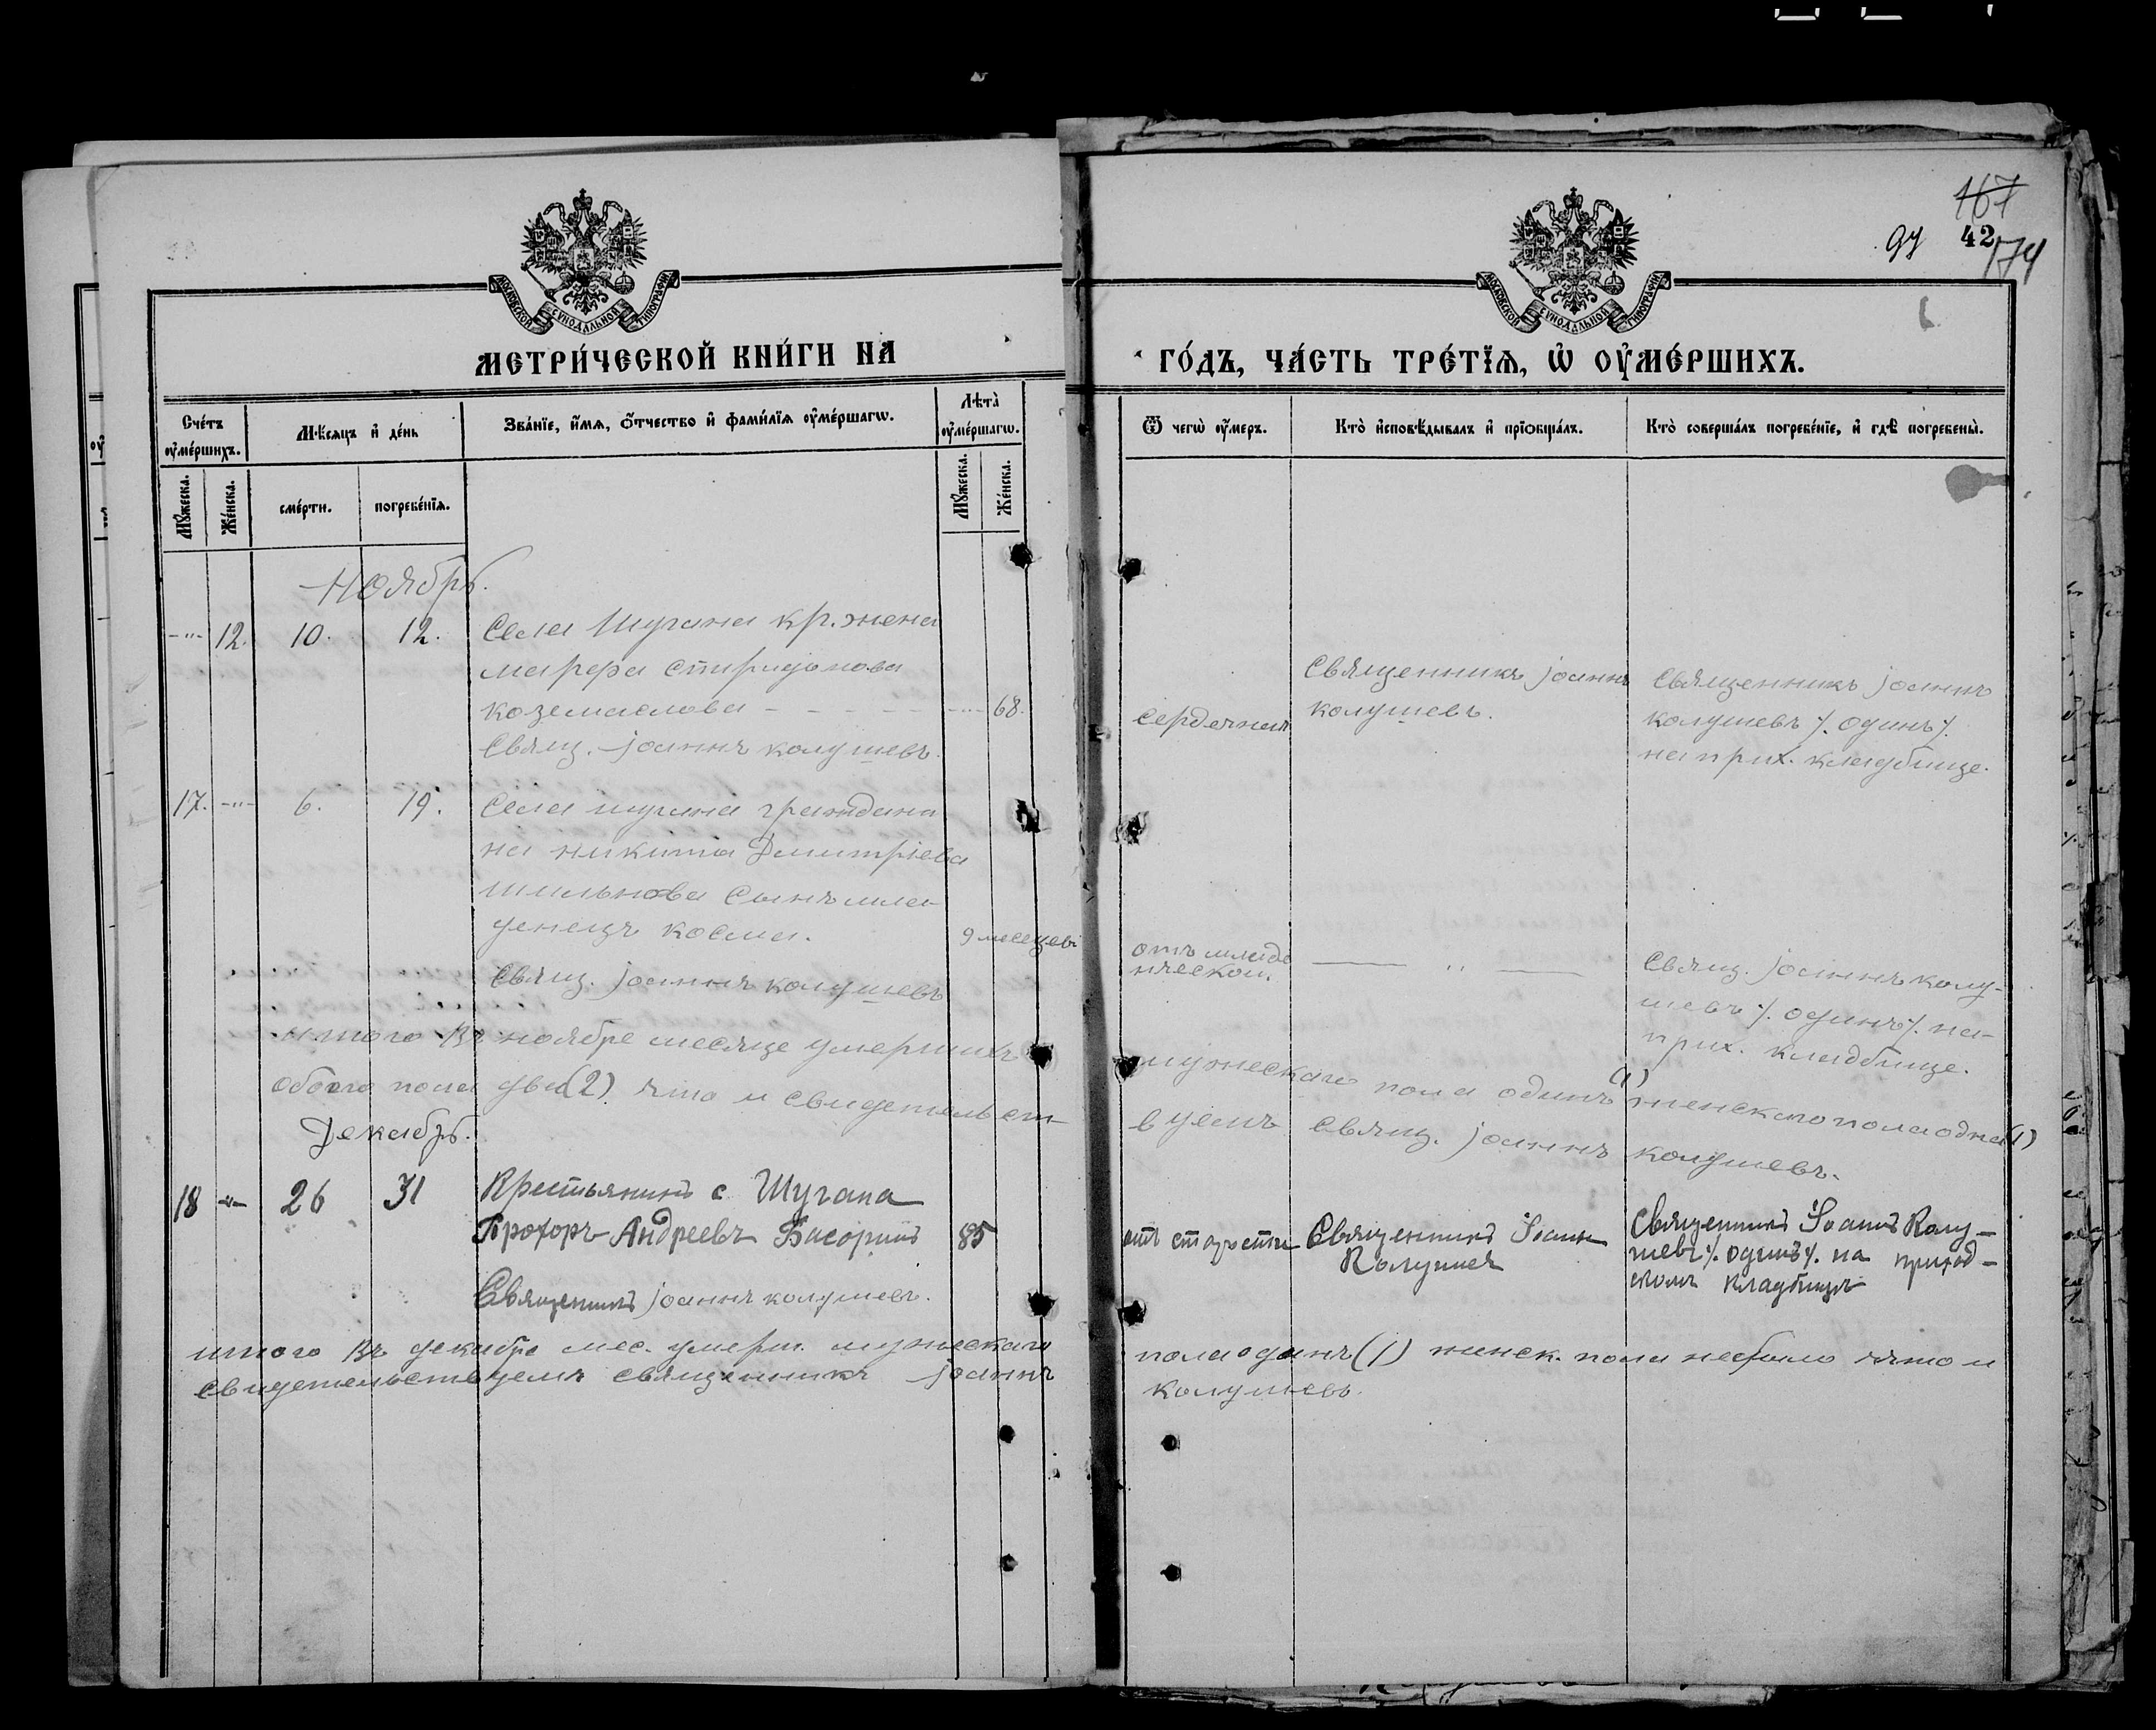 167
97 42
174
МОСКОВСКОЙ СУНОДАЛЬНОЙ ТИПОГРАФІИ
МОСКОВСКОЙ СУНОДАЛЬНОЙ ТИПОГРАФІИ
МЕТРИ́ЧЕСКОЙ КНИ́ГИ НА
ГО́ДЪ, ЧА́СТЬ ТРЕ́ТЇѦ, Ѡ҆ ОУ҆МЕ́РШИХЪ.
Сче́тъ оу҆ме́ршихъ.
Мѣ́сѧцъ и҆ де́нь
Зва́нїе, и҆́мѧ, ѻ҆́тчество и҆ фами́лїѧ оу҆ме́ршагѡ.
Лѣта̀ оу҆ме́ршагѡ.
Ѿ чегѡ̀ оу҆́меръ.
Кто̀ и҆сповѣ́дывалъ и҆ прїѡбща́лъ.
Кто̀ соверша́лъ погребе́нїе, и҆ гдѣ̀ погребены̀.
Мꙋ́жеска.
Же́нска.
сме́рти.
погребе́нїѧ.
Мꙋ́жеска.
Же́нска.
Ноябрь.
-"- 12. 10. 12. Села Шугана кр. жена
марфа спиридонова
коземаслова - - - - - -"- 68.
Свящ. Іоаннъ колушевъ.
сердечная
Священникъ Іоаннъ
колушевъ.
Священникъ Іоаннъ
колушевъ /. одинъ /.
на прих. кладбище.
17. -"- 6. 19. Села шугана граждани
на никита Дмитріева
шилькова Сынъ мла-
денецъ косма. 9 месецевъ
Свящ. Іоаннъ колушевъ
отъ младе
нческой.
— " —
Свящ. Іоаннъ колу-
шевъ /. одинъ /. на
прих. кладбище.
итого Въ ноябре месяце умершихъ
мужескаго пола одинъ (1) женскаго пола одна (1)
обоего пола два (2) что и свидетельст-
вуемъ Свящ. Іоаннъ колушевъ.
Декабрь.
18 -"- 26 31 Крестьянинъ с Шугана
Прохоръ Андреевъ 85
Священникъ Іоаннъ колушевъ.
отъ старости
Священникъ Іоанн
Колушев
Священникъ Іоаннъ Колу-
шевъ /. одинъ /. на приход-
скомъ кладбищѣ
итого Въ декабре мес. умерш. мужескаго
пола одинъ (1) женск. пола небыло что и
свидетельствуемъ священникъ Іоаннъ
колушевъ.